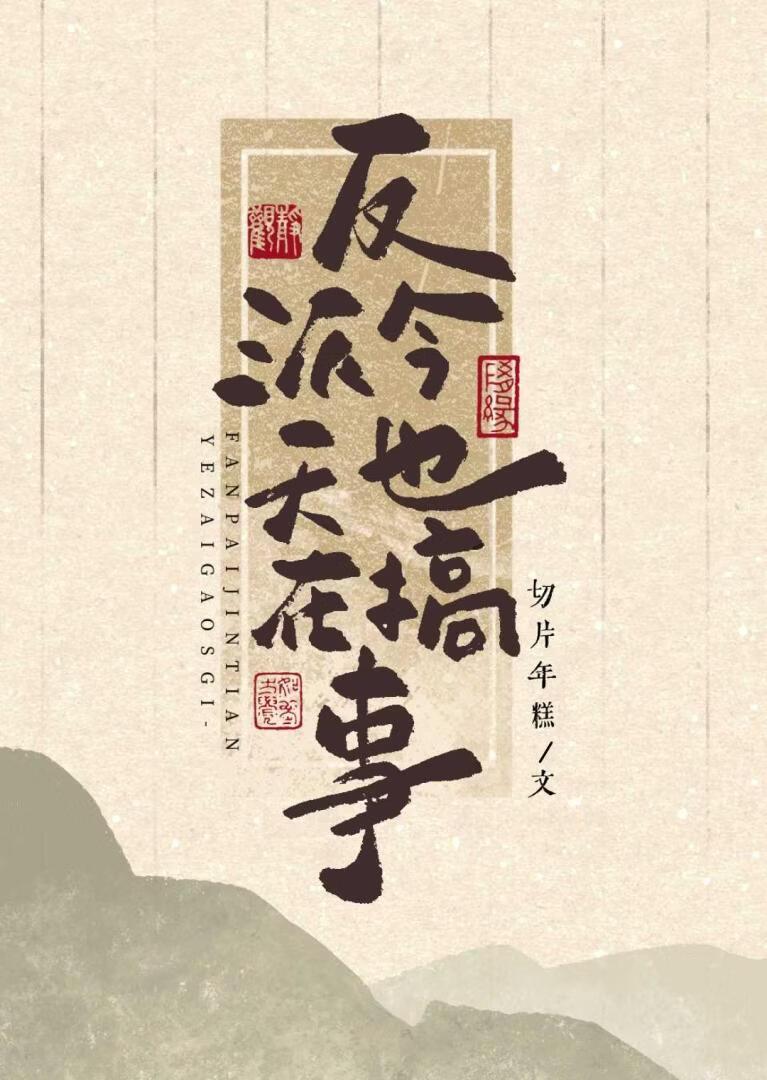 反派今天也在搞事
靜觀
FANPAIJINTIAN
YEZAIGAOSGI-
切片年糕/文